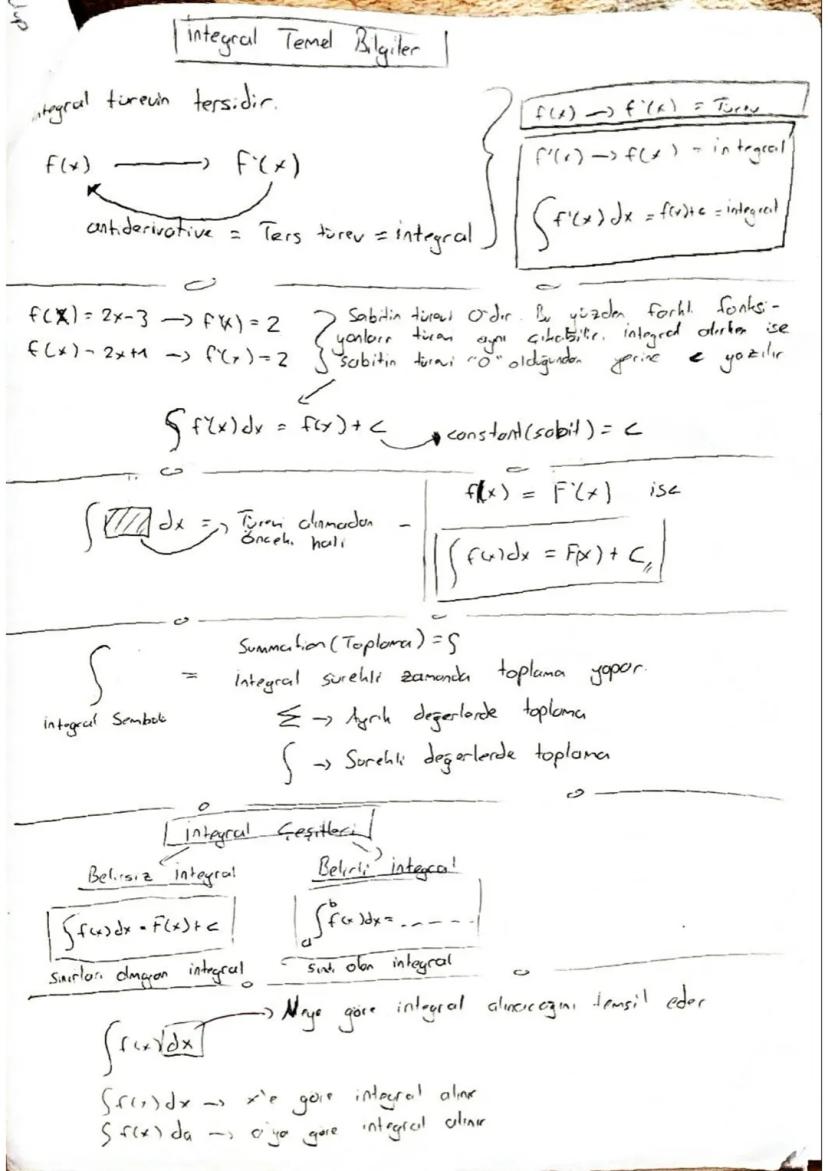 integral Temel Bilgiler
integral türevin tersidir.
f(x) → f'(x)
antiderivative = Ters türev = integral
f(x) → f'(x) = Türev
f'(x) → f(x) = integral
∫ f'(x) dx = f(x)+c = integral
f(x) = 2x-3 → f'(x) = 2
f(x) = 2x+1 → f'(x) = 2
Sabitin türevi 0'dır. Bu yüzden farklı fonksi-
yonların türevi aynı çıkabilir. integral alırken ise
sabitin türevi "0" olduğundan yerine c yazılır
∫ f'(x) dx = f(x) + c → constant(sabit) = c
∫ dx => Türevi alınmadan
önceki hali
f(x) = F'(x) ise
∫ f(x) dx = F(x) + C,,
∫ = Summation (Toplama) = ∫
integral Sembolü
integral sürekli zamanda toplama yapar.
Σ → Ayrık değerlerde toplama
∫ → Sürekli değerlerde toplama
integral Çeşitleri
Belirsiz integral
∫ f(x) dx = F(x) + c
Sınırları olmayan integral
Belirli integral
a∫b f(x) dx = ------
Sınırlı olan integral
∫ f(x) dx → Neye göre integral alınacağını temsil eder
∫ f(x) dx → x'e göre integral alınır
∫ f(x) da → a'ya göre integral alınır